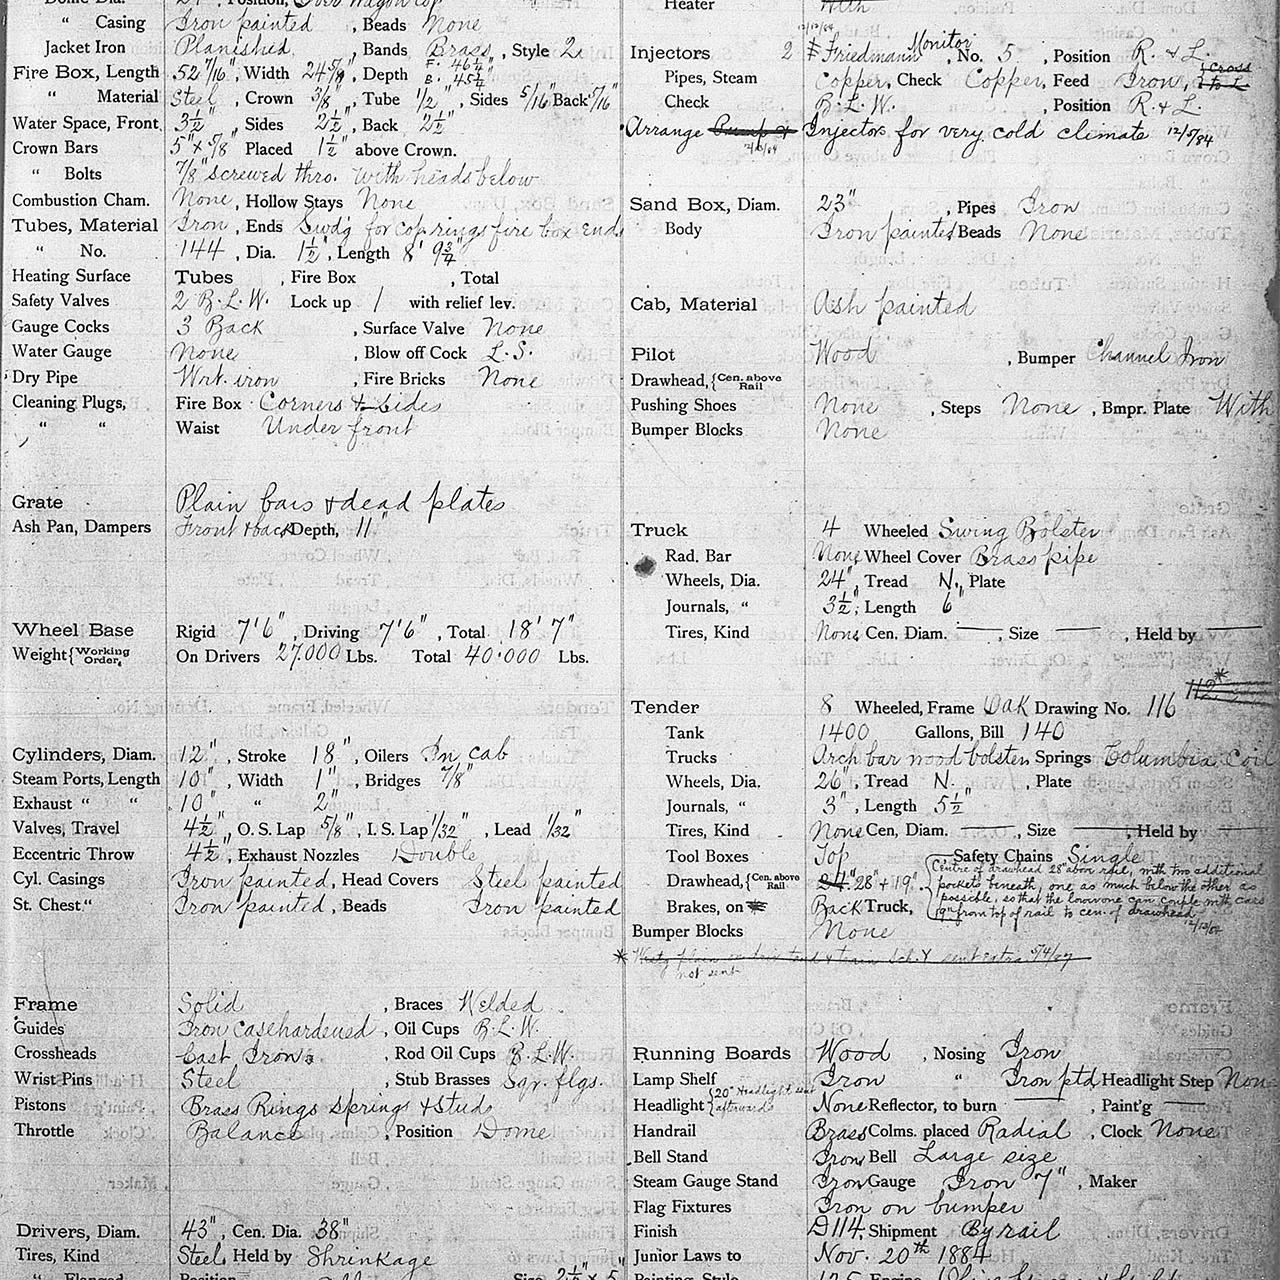 " Casing Iron painted , Beads None
Jacket Iron Planished , Bands Brass , Style 2
Fire Box, Length 52 7/16" , Width 24 5/8" , Depth F. 46 1/4" B. 45 1/4"
" Material Steel , Crown 3/8" , Tube 1/2" , Sides 5/16" Back 5/16"
Water Space, Front 3 1/2" Sides 2 1/2" , Back 2 1/2"
Crown Bars 5" × 5/8" Placed 1 1/2" above Crown.
" Bolts 7/8" screwed thro. with heads below
Combustion Cham. None , Hollow Stays None
Tubes, Material Iron , Ends Swdg for cop rings fire box ends
" No. 144 , Dia. 1 1/2" , Length 8' 9 3/4"
Heating Surface Tubes , Fire Box , Total
Safety Valves 2 B.L.W. Lock up 1 with relief lev.
Gauge Cocks 3 Back , Surface Valve None
Water Gauge None , Blow off Cock L.S.
Dry Pipe Wort. iron , Fire Bricks None
Cleaning Plugs, Fire Box Corners & Sides
" " Waist Under front
Grate Plain bars & dead plates
Ash Pan, Dampers Front & back Depth, 11"
Wheel Base Rigid 7' 6" , Driving 7' 6" , Total 18' 7"
Weight { Working Order, On Drivers 27.000 Lbs. Total 40.000 Lbs.
Cylinders, Diam. 12" , Stroke 18" , Oilers In cab
Steam Ports, Length 10" , Width 1" , Bridges 7/8"
Exhaust " " 10" " 2"
Valves, Travel 4 1/2" , O. S. Lap 5/8" , I. S. Lap 1/32" , Lead 1/32"
Eccentric Throw 4 1/2" , Exhaust Nozzles Double
Cyl. Casings Iron painted , Head Covers Steel painted
St. Chest " Iron painted , Beads Iron painted
Frame Solid , Braces Welded
Guides Iron casehardened , Oil Cups B.L.W.
Crossheads Cast Iron , Rod Oil Cups B.L.W.
Wrist Pins Steel , Stub Brasses Sqr. flgs.
Pistons Brass Rings Springs & Studs
Throttle Balance , Position Dome
Drivers, Diam. 43" , Cen. Dia. 38"
Tires, Kind Steel , Held by Shrinkage
Heater With
12/12/84
Injectors 2 # Friedmann Monitor , No. 5 , Position R. & L.
Pipes, Steam Copper , Check Copper , Feed Iron,
Check B.L.W. , Position R. & L.
Arrange Pump & Injector for very cold climate 12/5/84
Sand Box, Diam. 23" , Pipes Iron
Body Iron painted Beads None
Cab, Material Ash painted
Pilot Wood , Bumper Channel Iron
Drawhead, { Cen. above Rail
Pushing Shoes None , Steps None , Bmpr. Plate With
Bumper Blocks None
Truck 4 Wheeled Swing Bolster
Rad. Bar None , Wheel Cover Brass pipe
Wheels, Dia. 24" , Tread N. , Plate
Journals, " 3 1/2" , Length 6"
Tires, Kind None Cen. Diam. —— , Size —— , Held by ——
112 *
Tender 8 Wheeled, Frame Oak Drawing No. 116
Tank 1400 Gallons, Bill 140
Trucks Arch bar wood bolsten Springs Columbia Coil
Wheels, Dia. 26" , Tread N. , Plate
Journals, " 3" , Length 5 1/2"
Tires, Kind None Cen. Diam. —— , Size —— , Held by ——
Tool Boxes Top , Safety Chains Single
Drawhead, { Cen. above Rail 24" 28" & 19" { Centre of drawhead 28" above rail, with two additional
pockets beneath, one as much below the other as
possible, so that the lower one can couple with cars
19" from top of rail to cen. of drawhead
Brakes, on Back Truck,
12/12/84
Bumper Blocks None
not sent
Running Boards Wood , Nosing Iron
Lamp Shelf Iron " Iron ptd Headlight Step None
Headlight { 20" Headlight sent afterwards None Reflector, to burn —— , Paint'g ——
Handrail Brass Colms. placed Radial , Clock None
Bell Stand Iron , Bell Large size
Steam Gauge Stand Iron Gauge Iron 7" , Maker
Flag Fixtures Iron on bumper
Finish D114 , Shipment By rail
Junior Laws to Nov. 20th 1884